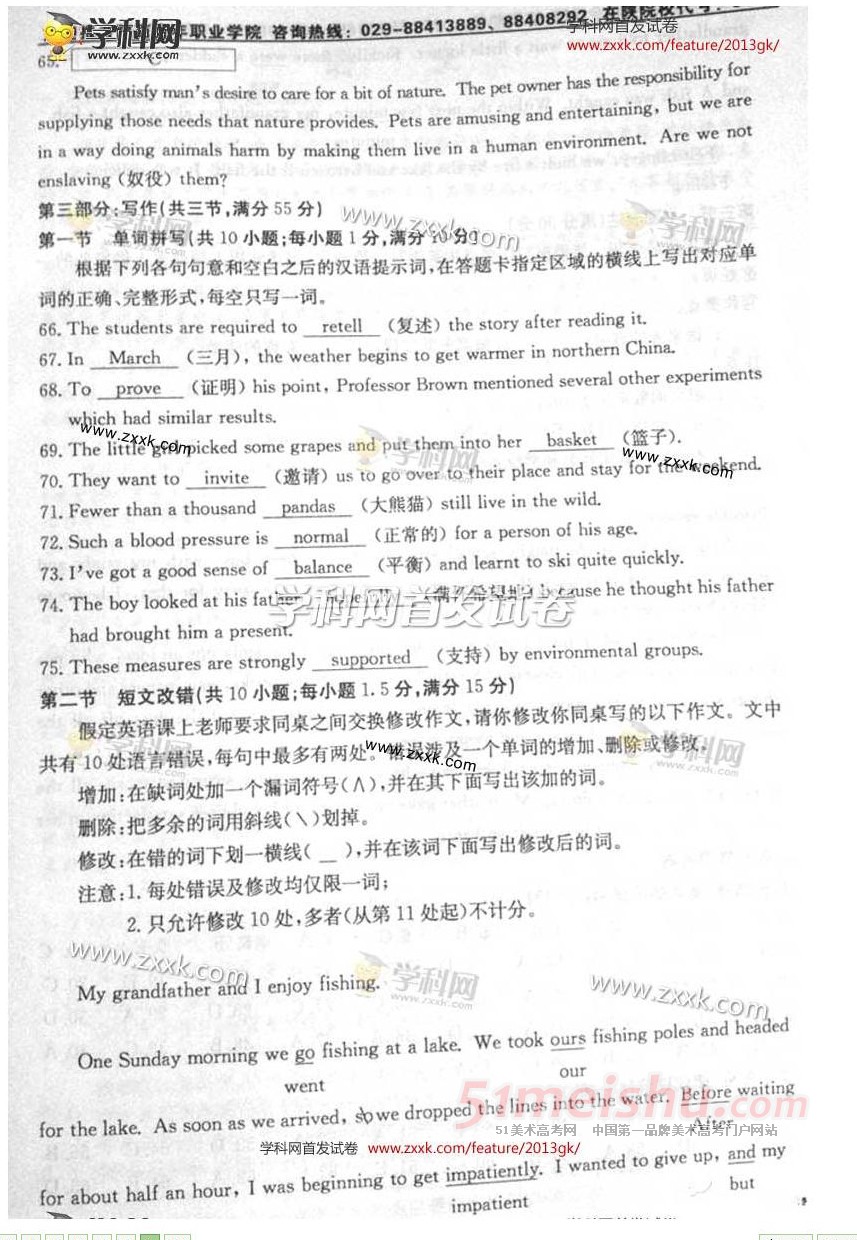 年职业学院 咨询热线：029-88413889、88408292 在陕院校代号：
学科网首发试卷
www.zxxk.com/feature/2013gk/
65. C
Pets satisfy man's desire to care for a bit of nature. The pet owner has the responsibility for
supplying those needs that nature provides. Pets are amusing and entertaining, but we are
in a way doing animals harm by making them live in a human environment. Are we not
enslaving (奴役) them?
第三部分:写作(共三节,满分 55 分)
第一节 单词拼写(共 10 小题;每小题 1 分,满分 10 分)
根据下列各句句意和空白之后的汉语提示词,在答题卡指定区域的横线上写出对应单
词的正确、完整形式,每空只写一词。
66. The students are required to retell (复述) the story after reading it.
67. In March (三月), the weather begins to get warmer in northern China.
68. To prove (证明) his point, Professor Brown mentioned several other experiments
which had similar results.
69. The little girl picked some grapes and put them into her basket (篮子).
70. They want to invite (邀请) us to go over to their place and stay for the weekend.
71. Fewer than a thousand pandas (大熊猫) still live in the wild.
72. Such a blood pressure is normal (正常的) for a person of his age.
73. I've got a good sense of balance (平衡) and learnt to ski quite quickly.
74. The boy looked at his father because he thought his father
学科网首发试卷
had brought him a present.
75. These measures are strongly supported (支持) by environmental groups.
第二节 短文改错(共 10 小题;每小题 1.5 分,满分 15 分)
假定英语课上老师要求同桌之间交换修改作文,请你修改你同桌写的以下作文。文中
共有 10 处语言错误,每句中最多有两处。错误涉及一个单词的增加、删除或修改。
增加:在缺词处加一个漏词符号(∧),并在其下面写出该加的词。
删除:把多余的词用斜线(\)划掉。
修改:在错的词下划一横线( __ ),并在该词下面写出修改后的词。
注意:1. 每处错误及修改均仅限一词;
2. 只允许修改 10 处,多者(从第 11 处起)不计分。
www.zxxk.com
学科网
www.zxxk.com
My grandfather and I enjoy fishing.
One Sunday morning we go fishing at a lake. We took ours fishing poles and headed
went our
for the lake. As soon as we arrived, so we dropped the lines into the water. Before waiting
After
51meishu.com
51美术高考网 中国第一品牌美术高考门户网站
学科网首发试卷 www.zxxk.com/feature/2013gk/
for about half an hour, I was beginning to get impatiently. I wanted to give up, and my
impatient but